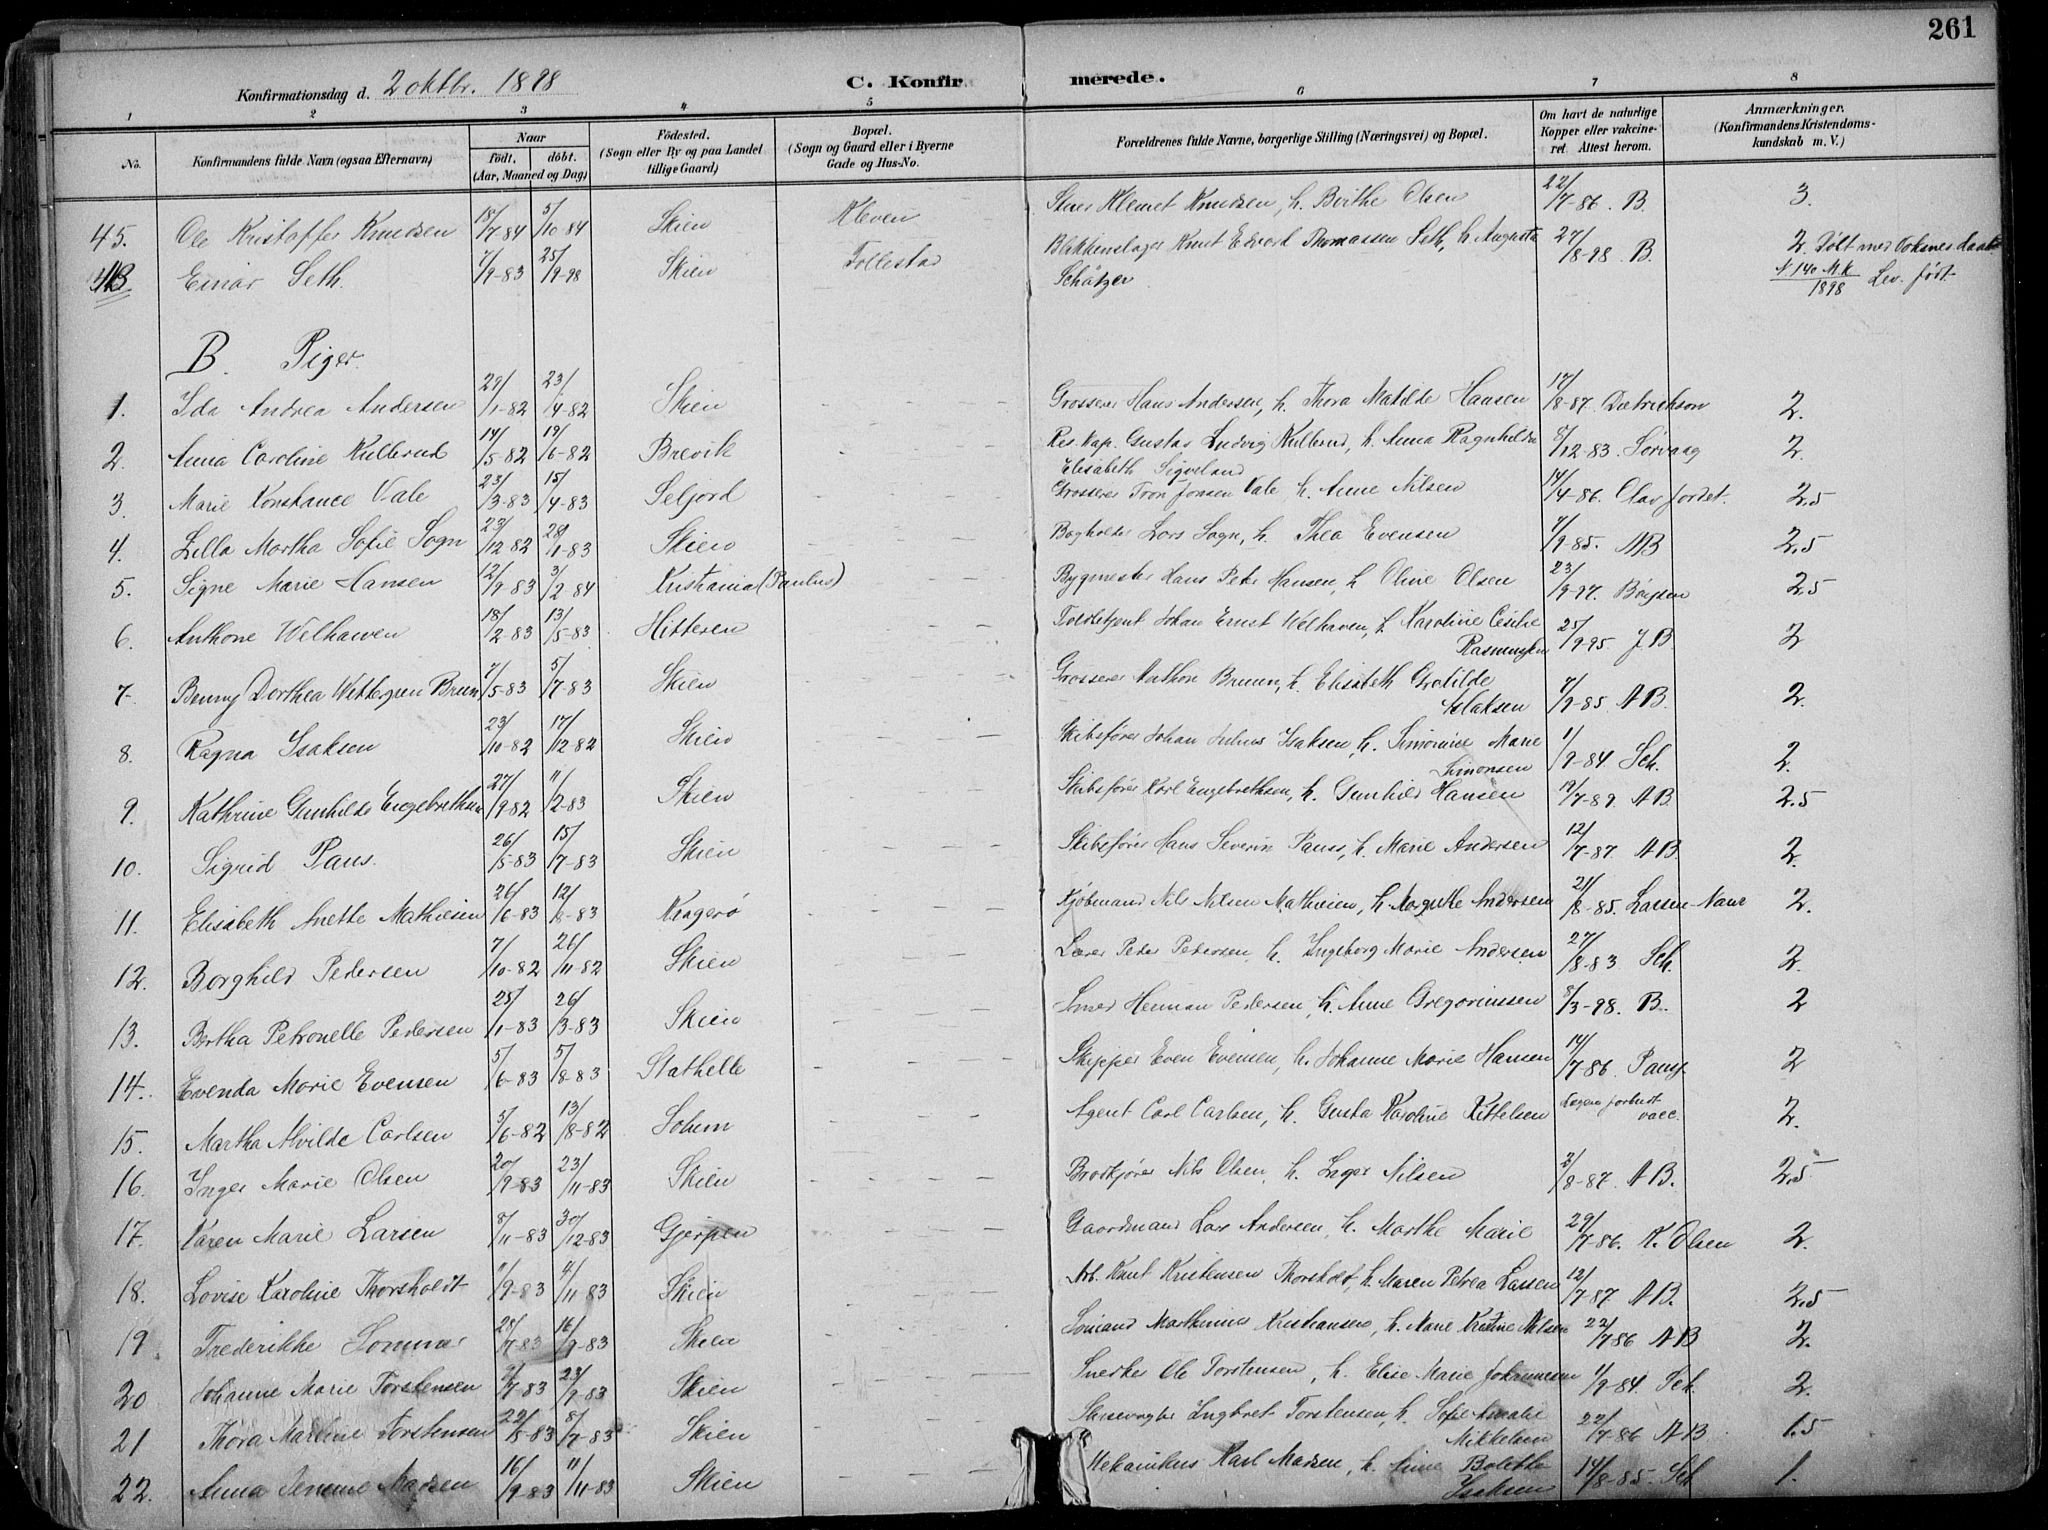 261
Konfirmationsdag d. 2 oktbr. 1898
C. Konfirmerede.
1 2 3 4 5 6 7 8
No. Konfirmandens fulde Navn (ogsaa Efternavn) Naar født, døbt. (Aar, Maaned og Dag) Fødested. (Sogn eller By og paa Landet tillige Gaard) Bopæl. (Sogn og Gaard eller i Byerne Gade og Hus-No. Forældrenes fulde Navne, borgerlige Stilling (Næringsvei) og Bopæl. Om havt de naturlige Kopper eller vakcineret. Attest herom. Anmærkninger. (Konfirmandens Kristendomskundskab m. V.)
45. Ole Kristoffer Knudsen 18/7-84 5/10-84 Skien Kleven Klemet Knudsen, h. Birthe Olsen 22/7-86. B. 3.
Einar Seth. 7/9-83 25/9-98 Skien Follestad Blikkenslager Knut Edvard Thomassen Seth, h. Augusta 27/8-98 B. 2
Schätzer N 140 M.K./1898 Lev. født
B. Piger.
1. Ida Andrea Andersen 29/1-82 23/4-82 Skien Grosserer Hans Andersen, h. Thora Matilde Hansen 17/8-87 Dietrichson 2.
2. Anna Caroline Kullerud 14/5-82 19/6-82 Brevik Res. Kap. Gustav Ludvig Kullerud, h. Anna Ragnhilda 8/12-83. Sørvaag 2.
Elisabeth Sigveland
3. Marie Konstance Vale 23/3-83 15/4-83 Seljord Grosserer Tron Jonsen Vale h. Anne Nilsen 14/4-86. Olav Jordet. 2.5
4. Lilla Martha Sofie Sogn 23/12-82 28/1-83 Skien Bogholder Lars Sogn, h. Thea Evensen 7/9-85. AB 2.5
5. Signe Marie Hansen 12/9-83 3/2-84 Kristiania (Paulus) Bygmester Hans Peter Hansen, h. Oline Olsen 23/9-97. 2.5
6. Anthone Welhawen 18/2-83 13/5-83 Hitteren Toldbetjent Johan Ernst Welhaven, h. Karoline Cesilie 25/9-95 J B. 2
Rasmussen
7. Benny Dorthea Wettergren Bruun 7/5-83 5/7-83 Skien Grosserer Anthon Bruun, h. Elisabeth Grotilde
Aslaksen 7/9-85. AB. 2.
8. Ragna Isaksen 23/10-82 17/12-82 Skien Skibsfører Johan Julius Isaksen, h. Simonine Marie 1/9-84. Sch. 2.
Simonsen
9. Kathrine Gunhilde Engebrethsen 27/9-82 11/2-83 Skien Skibsfører Karl Engebrethsen, h. Gunhild Hansen 19/7-89. AB. 2.5
10. Sigrid Paus. 26/5-83 15/7-83 Skien Skibsfører Hans Severin Paus, h. Marie Andersen 12/7-87. AB. 2.
11. Elisabeth Anette Mathiesen 26/6-83 12/8-83 Kragerø Kjøbmand Nils Nilsen Mathiesen, h. Margrethe Andersen 21/8-85. Larsen-Naur 2.
12. Borghild Pedersen 7/10-82 26/11-82 Skien Lærer Peder Pedersen, h. Ingeborg Marie Andersen 27/8-83 Sch. 2.
13. Bertha Petronelle Pedersen 25/1-83 26/3-83 Skien Smed Herman Pedersen, h. Anne Gregoriussen 8/3-98. B. 2
14. Evenda Marie Evensen 5/6-83 5/8-83 Stathelle Skipper Even Evensen, h. Johanne Marie Hansen 14/7-86. Paus. 2
15. Martha Alvilde Carlsen 5/6-82 13/8-82 Solum Agent Carl Carlsen, h. Gusta Karoline Kittelsen Lægen forbudt vacc. 2.
16. Inger Marie Olsen 20/9-83 23/11-83 Skien Nils Olsen, h. Inger Nilsen 3/8-87. AB. 2.5
17. Karen Marie Larsen 8/11-83 30/12-83 Gjerpen Gaardmand Lars Andersen, h. Marthe Marie 29/7-86. K. Olsen 2.
18. Lovise Karoline Thorsholdt 11/9-83 4/11-83 Skien Arb. Knut Kristensen Thorsholt, h. Maren Petrea Larsen 12/7-87 AB. 2.5
19 Frederikke Sommer 28/7-83 16/9-83 Skien Sømand Marthinius Kristiansen, h. Marie Kristine Nilsen 22/7-86 AB 2.
20 Johanne Marie Torstensen 2/7-83 23/9-83 Skien Snedker Ole Torstensen, h. Elise Marie Johannesen 1/9-84. Sch. 2.
21 Thora Martine Torstensen 22/5-83 8/7-83 Skien Slusevogter Ingbret Torstensen, h. Sofie Amalie
Mikkelsen 22/7-86 AB 1.5
22. Anna Madsen 16/9-83 11/11-83 Skien Mekanikus Karl Madsen, h. Anne Bolette 14/8-85. Sch 1.
Isaksen